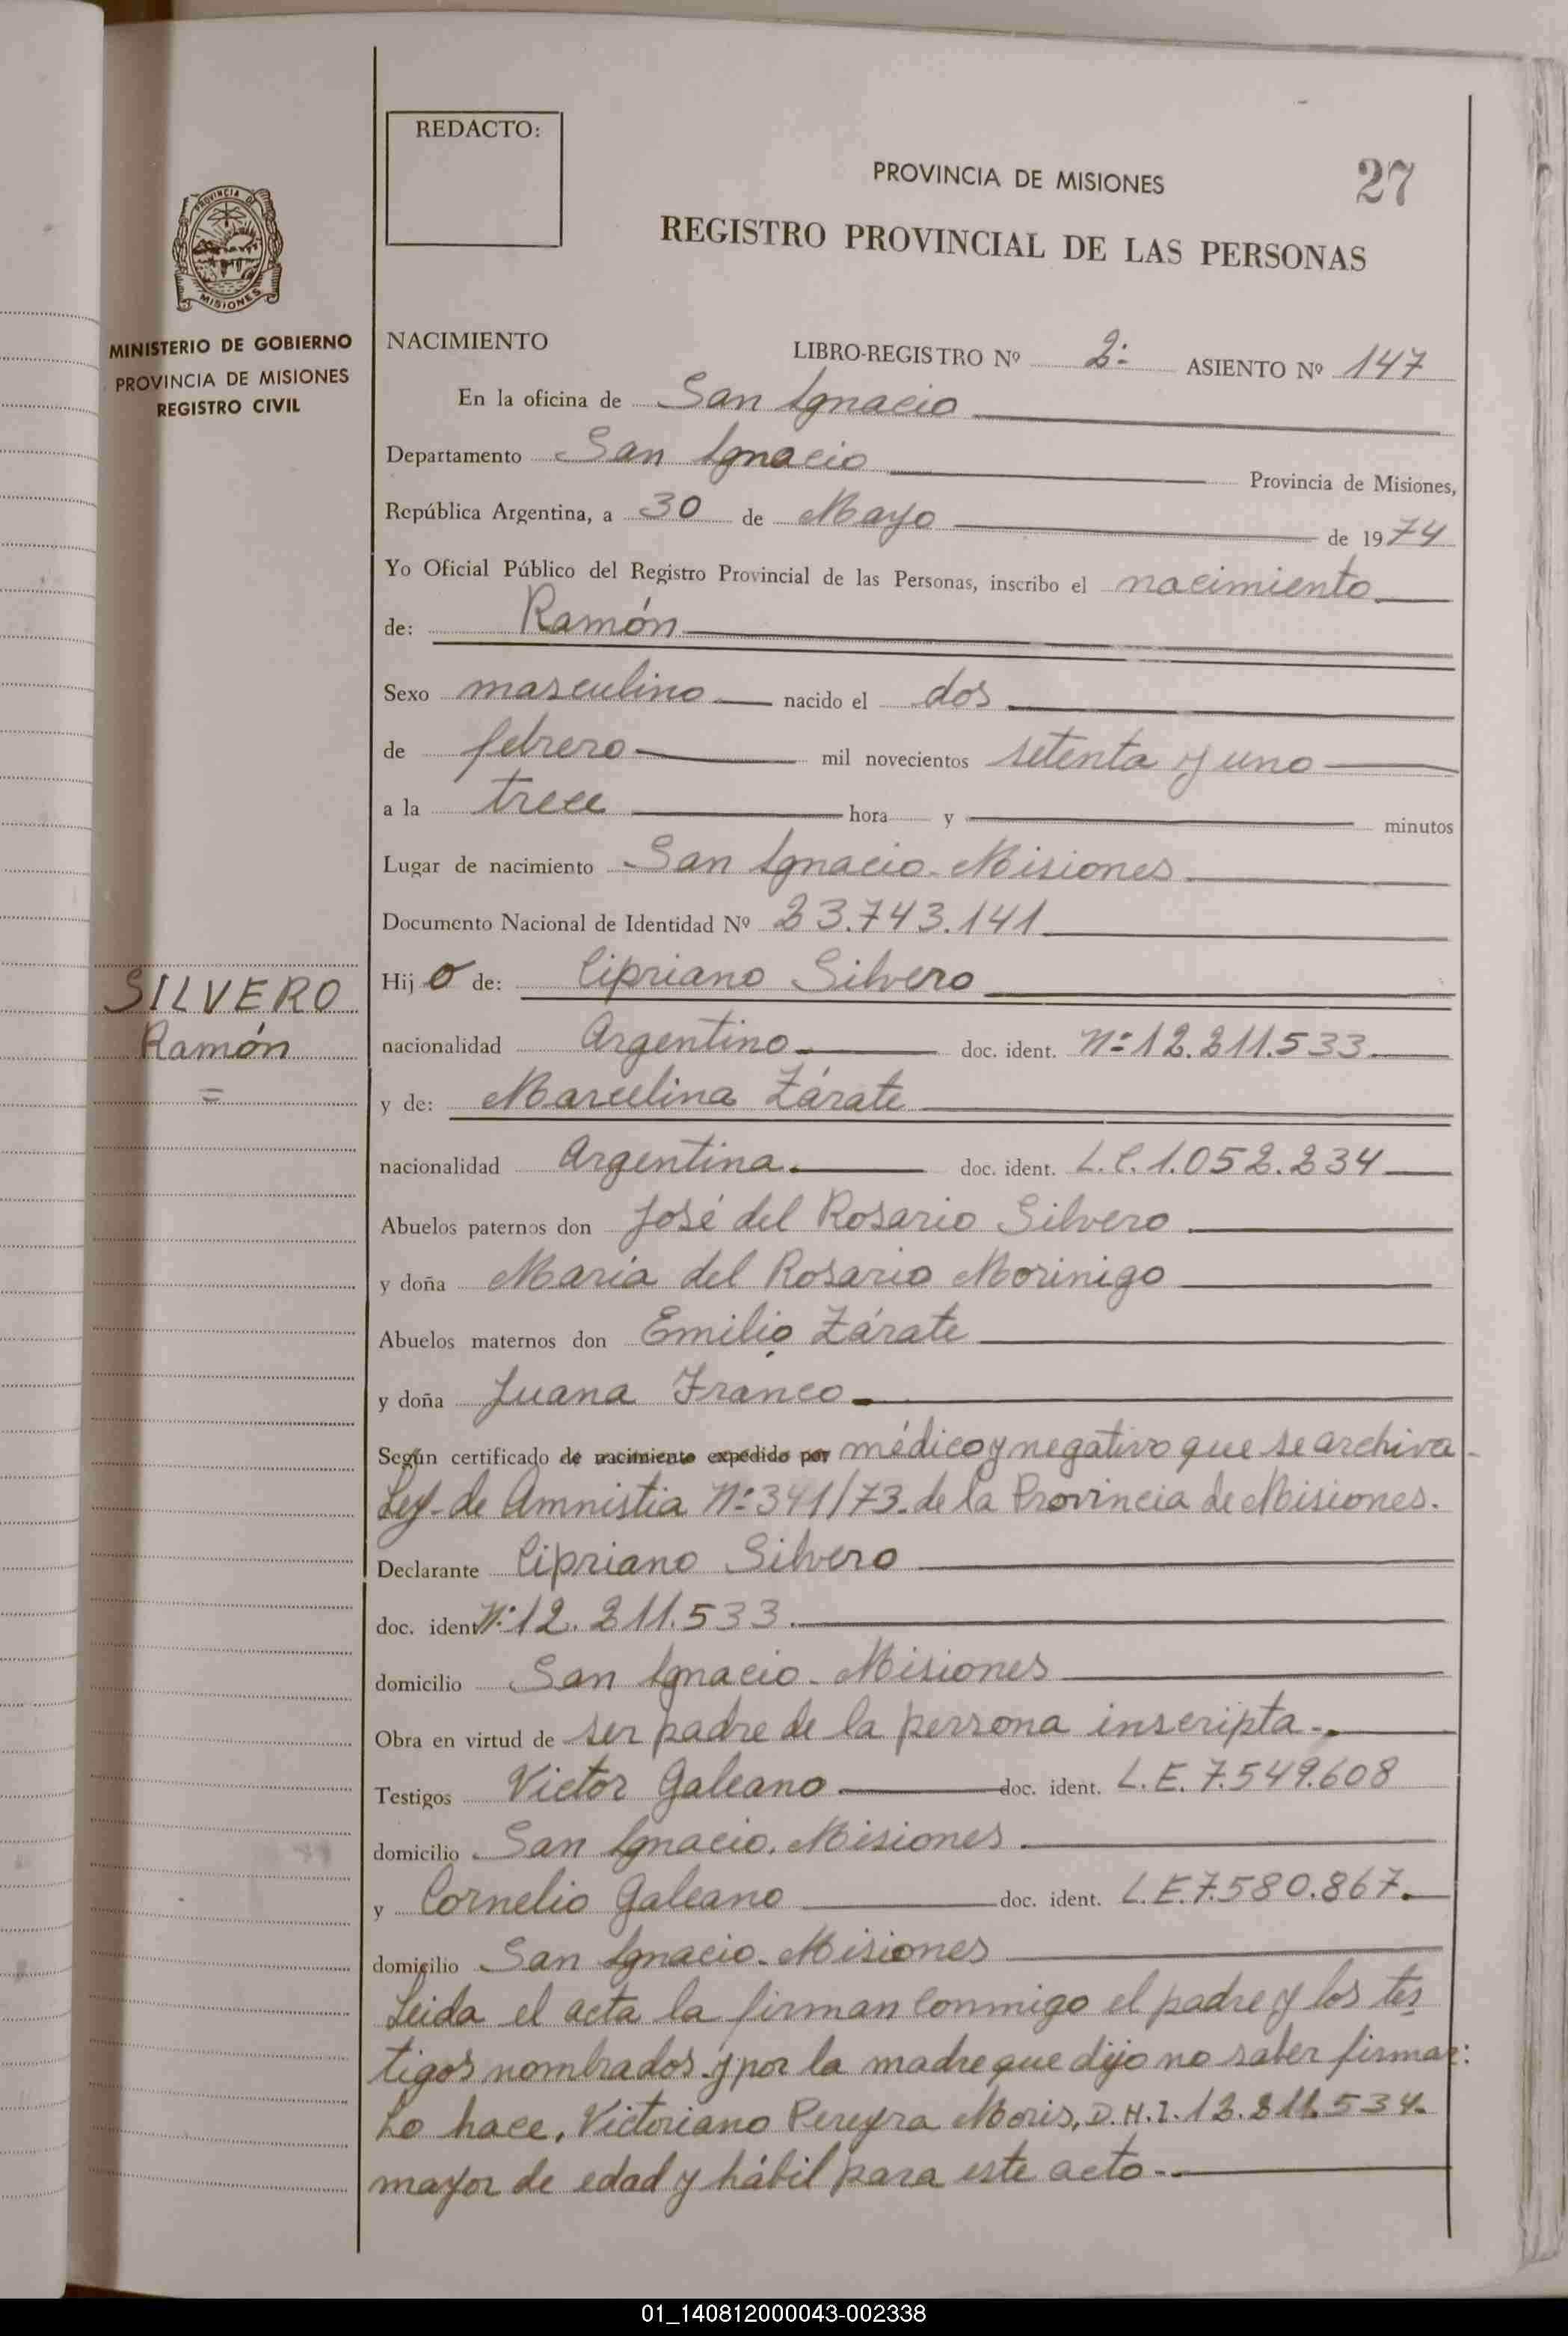 REDACTO:
PROVINCIA DE MISIONES
27
REGISTRO PROVINCIAL DE LAS PERSONAS
PROVINCIA DE
MISIONES
MINISTERIO DE GOBIERNO
PROVINCIA DE MISIONES
REGISTRO CIVIL
NACIMIENTO LIBRO-REGISTRO Nº 2º ASIENTO Nº 147
En la oficina de San Ignacio
Departamento San Ignacio Provincia de Misiones,
República Argentina, a 30 de Mayo de 1974
Yo Oficial Público del Registro Provincial de las Personas, inscribo el nacimiento
de: Ramón
Sexo masculino nacido el dos
de febrero mil novecientos setenta y uno
a la trece hora y minutos
Lugar de nacimiento San Ignacio-Misiones
Documento Nacional de Identidad Nº 23.743.141
SILVERO
Ramón
=
Hijo de: Cipriano Silvero
nacionalidad Argentino doc. ident. Nº 12.211.533
y de: Marcelina Zárate
nacionalidad Argentina. doc. ident. L.C. 1.052.234
Abuelos paternos don José del Rosario Silvero
y doña Maria del Rosario Morinigo
Abuelos maternos don Emilio Zárate
y doña Juana Franco
Según certificado de nacimiento expedido por médico y negativo que se archiva-
Ley-de Amnistia Nº 341/73-de la Provincia de Misiones.
Declarante Cipriano Silvero
doc. ident Nº 12.211.533.
domicilio San Ignacio-Misiones
Obra en virtud de ser padre de la persona inscripta-.
Testigos Victor Galeano doc. ident. L.E. 7.549.608
domicilio San Ignacio. Misiones
y Cornelio Galeano doc. ident. L.E.7.580.867.
domicilio San Ignacio-Misiones
Leida el acta la firman conmigo el padre y los tes
tigos nombrados y por la madre que dijo no saber firmar:
Lo hace, Victoriano Pereyra Moris, D.N.I. 12.211.534.
mayor de edad y hábil para este acto-.
01_140812000043-002338